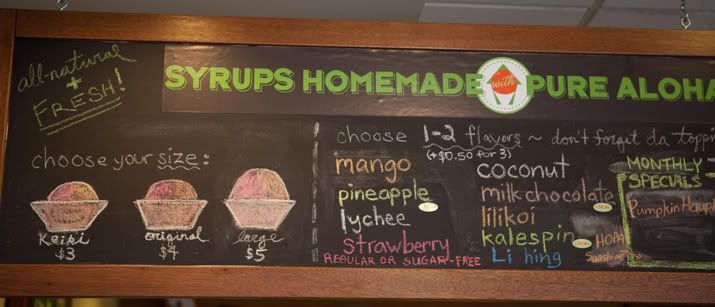 all-natural
+
FRESH!
SYRUPS HOMEMADE with PURE ALOHA
choose your size:
Keiki
$3
original
$4
large
$5
choose 1-2 flavors ~ don't forget da toppi
(+$0.50 for 3)
mango
pineapple
lychee
Strawberry
REGULAR OR SUGAR-FREE
coconut
milk chocolate
lilikoi
kalespin
Li hing
MONTHLY
SPECIALS
Pumpkin Haup
Sunshine